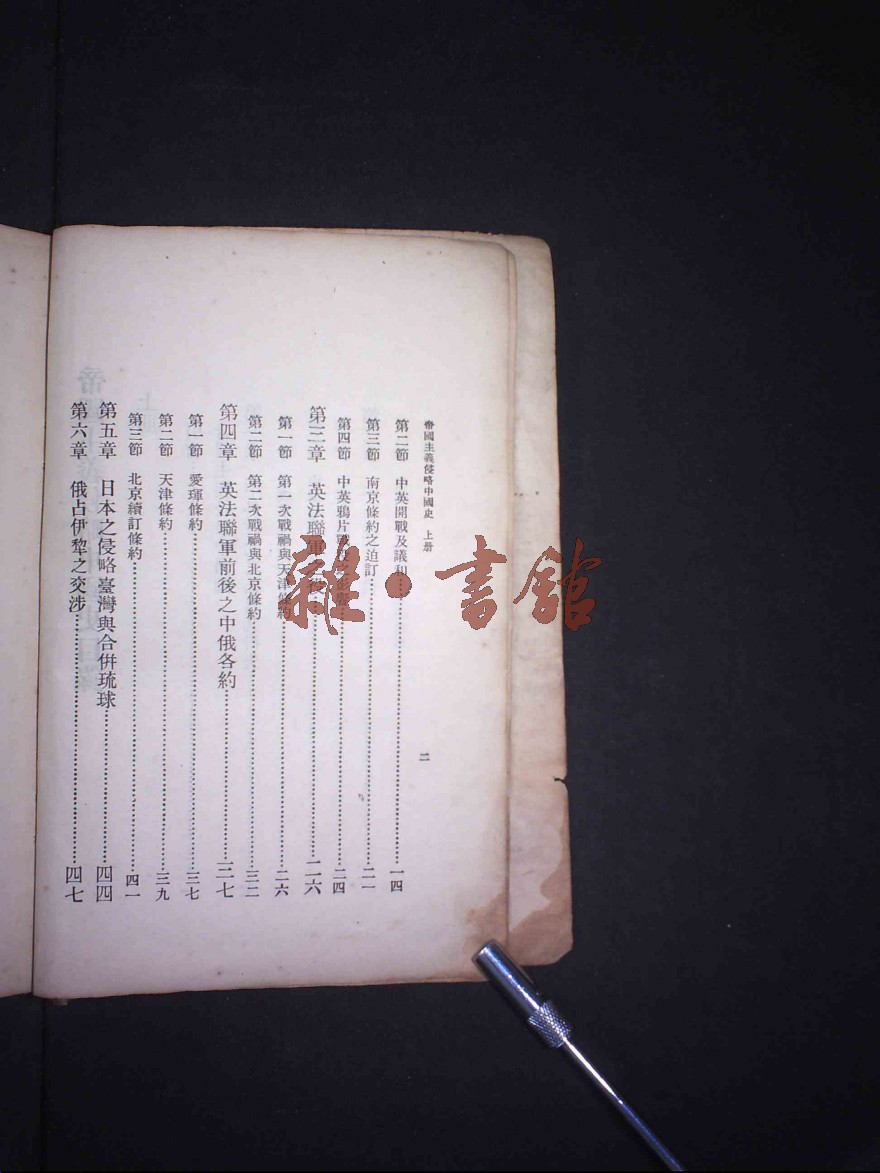 帝國主義侵略中國史 上册
二
第二節 中英開戰及議和……一四
第三節 南京條約之迫訂……二一
第四節 中英鴉片戰……二四
第三章 英法聯軍……二六
第一節 第一次戰禍與天津條約……二六
第二節 第二次戰禍與北京條約……三二
第四章 英法聯軍前後之中俄各約……三七
第一節 愛琿條約……三七
第二節 天津條約……三九
第三節 北京續訂條約……四一
第五章 日本之侵略臺灣與合併琉球……四四
第六章 俄占伊犂之交涉……四七
雜·書館